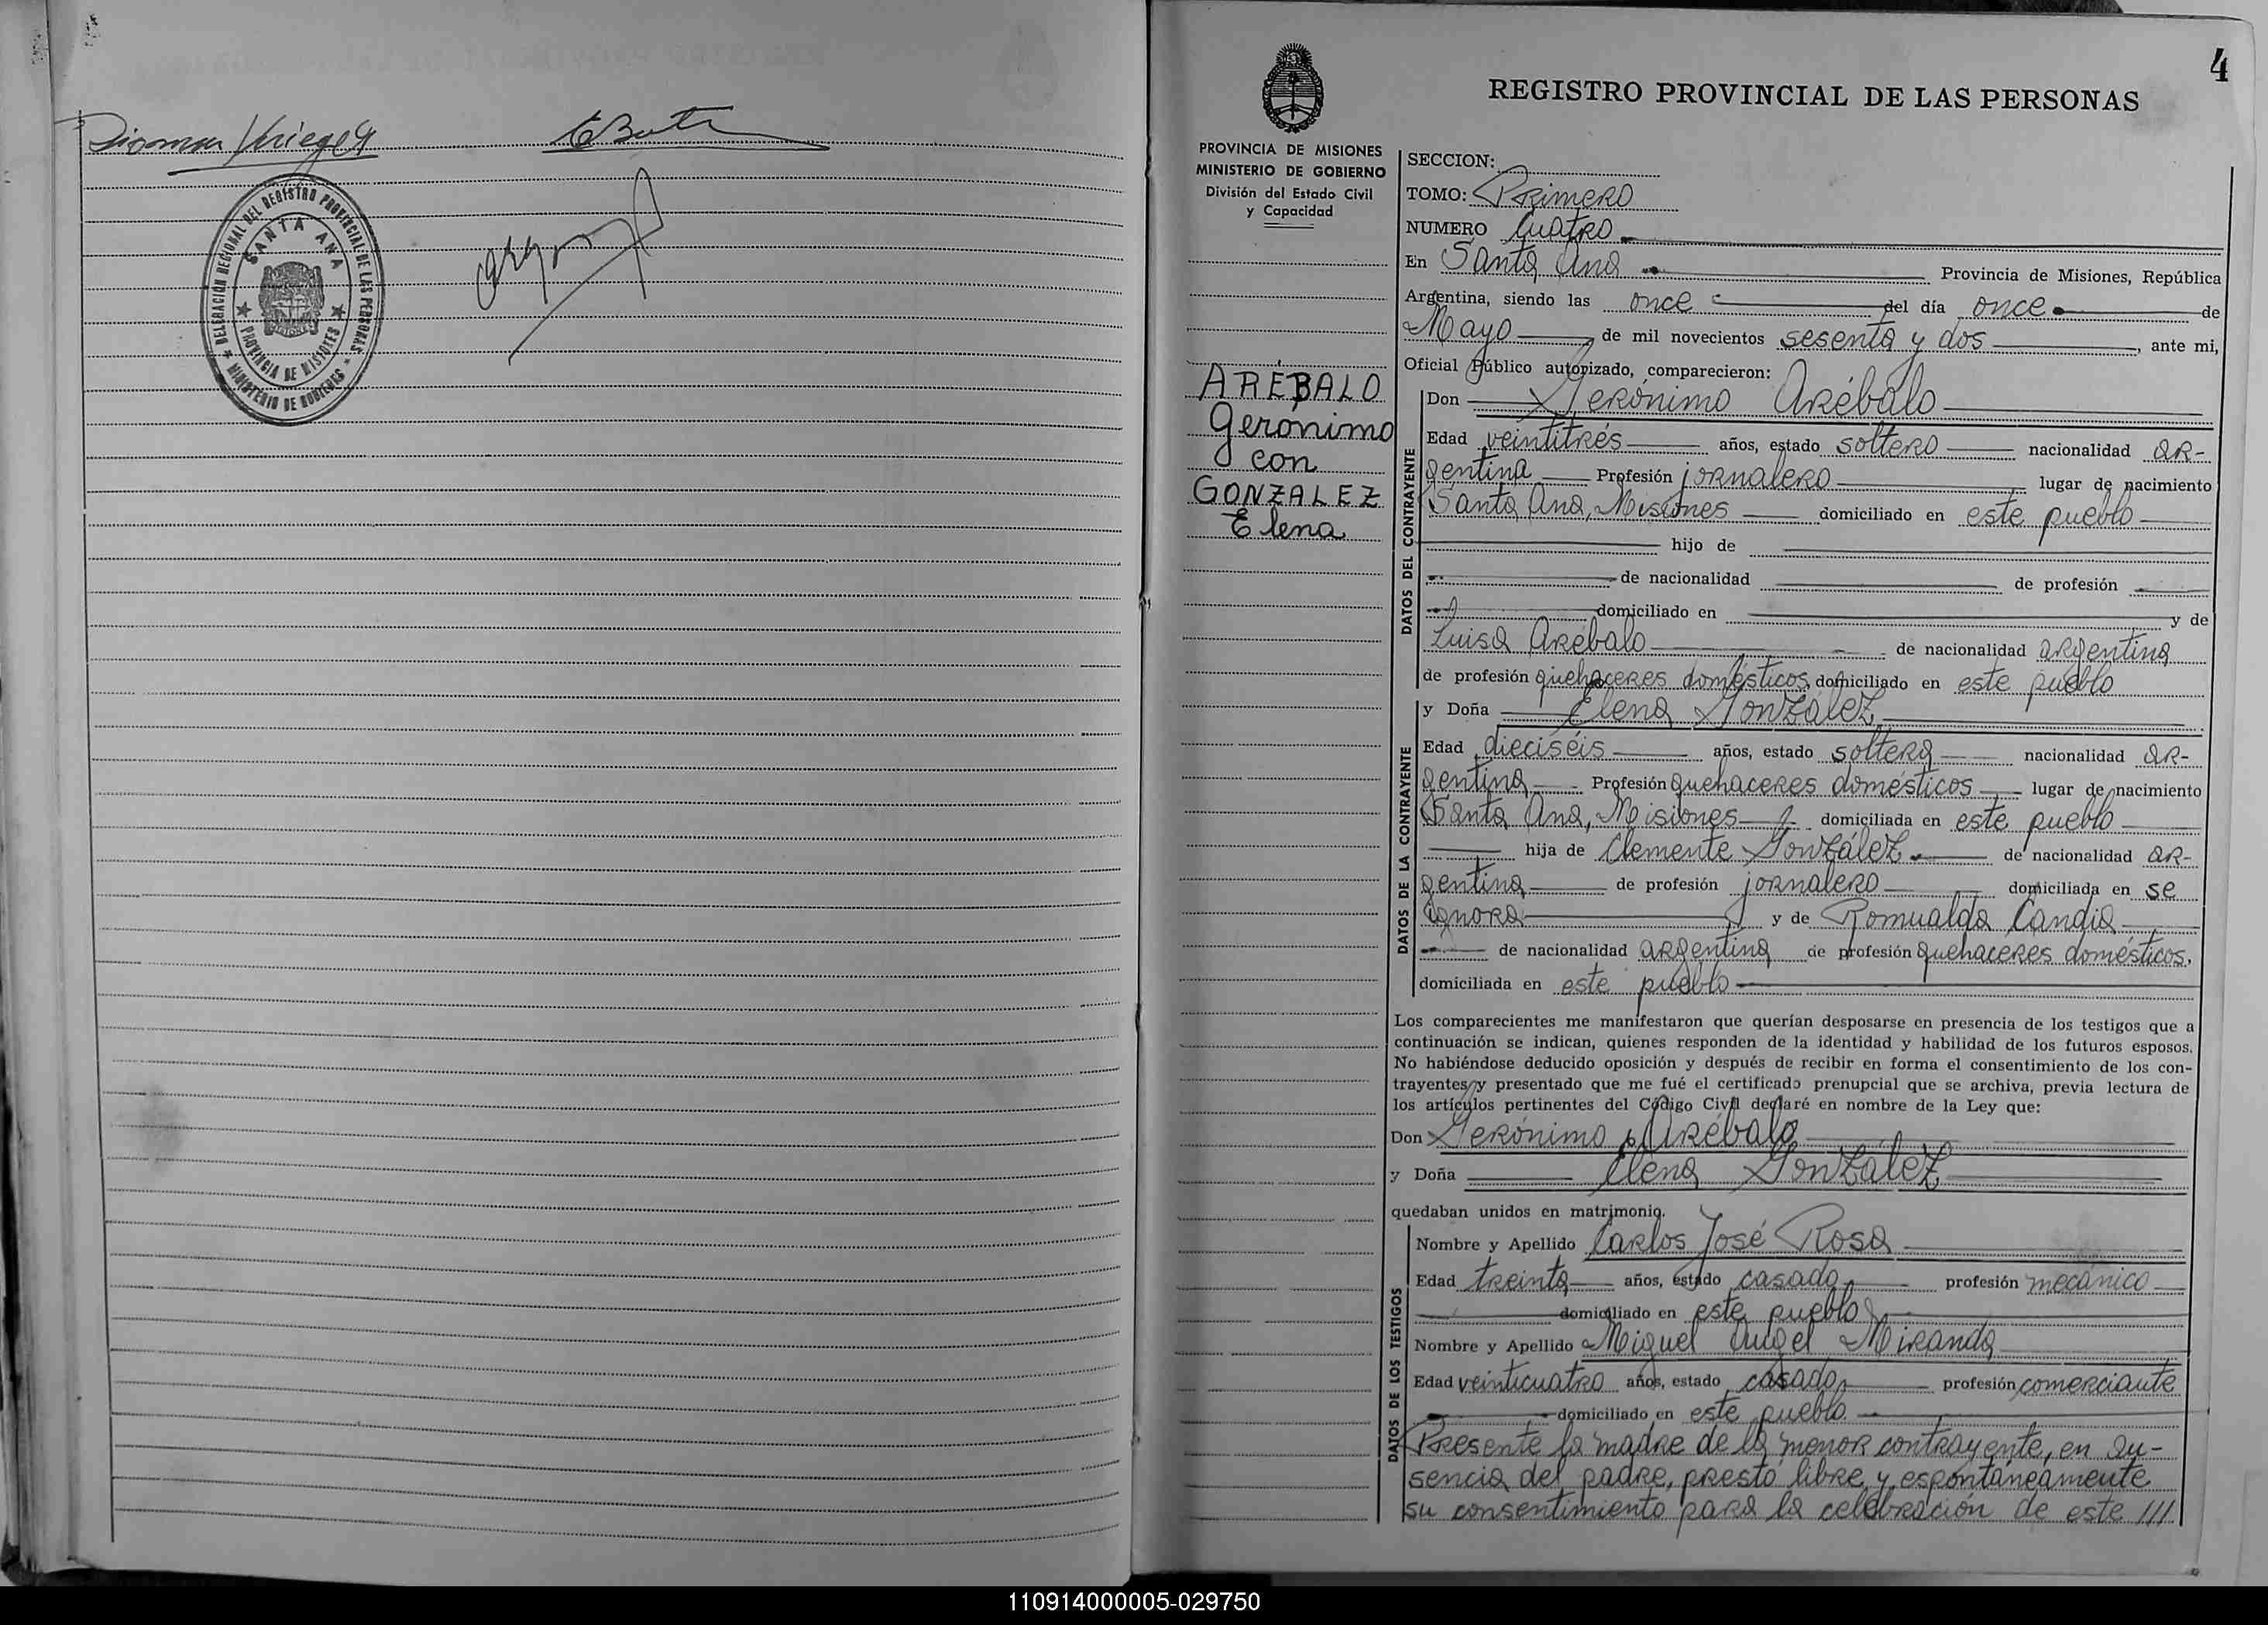 DELEGACIÓN REGIONAL DEL REGISTRO PROVINCIAL DE LAS PERSONAS
SANTA ANA
PROVINCIA DE MISIONES
MINISTERIO DE GOBIERNO
4
REGISTRO PROVINCIAL DE LAS PERSONAS
PROVINCIA DE MISIONES
MINISTERIO DE GOBIERNO
División del Estado Civil
y Capacidad
ARÉBALO
Gerónimo
con
GONZALEZ
Elena
SECCION:
TOMO: Primero
NUMERO Cuatro
En Santa Ana Provincia de Misiones, República
Argentina, siendo las once del día once de
Mayo de mil novecientos sesenta y dos, ante mi,
Oficial Público autorizado, comparecieron:
DATOS DEL CONTRAYENTE
Don Gerónimo Arébalo
Edad veintitrés años, estado soltero nacionalidad ar-
gentina Profesión jornalero lugar de nacimiento
Santa Ana, Misiones domiciliado en este pueblo
hijo de
de nacionalidad de profesión
domiciliado en y de
Luisa Arébalo de nacionalidad argentina
de profesión quehaceres domésticos domiciliado en este pueblo
DATOS DE LA CONTRAYENTE
y Doña Elena González
Edad dieciséis años, estado soltera nacionalidad ar-
gentina Profesión quehaceres domésticos lugar de nacimiento
Santa Ana, Misiones domiciliada en este pueblo
hija de Clemente González de nacionalidad ar-
gentina de profesión jornalero domiciliada en se
ignora y de Romualda Candia
de nacionalidad argentina de profesión quehaceres domésticos,
domiciliada en este pueblo
Los comparecientes me manifestaron que querían desposarse en presencia de los testigos que a
continuación se indican, quienes responden de la identidad y habilidad de los futuros esposos.
No habiéndose deducido oposición y después de recibir en forma el consentimiento de los con-
trayentes y presentado que me fué el certificado prenupcial que se archiva, previa lectura de
los artículos pertinentes del Código Civil declaré en nombre de la Ley que:
Don Gerónimo Arébalo
y Doña Elena González
quedaban unidos en matrimonio.
DATOS DE LOS TESTIGOS
Nombre y Apellido Carlos José Rosa
Edad treinta años, estado casado profesión mecánico
domiciliado en este pueblo
Nombre y Apellido Miguel Angel Miranda
Edad veinticuatro años, estado casado profesión comerciante
domiciliado en este pueblo.
Presente la madre de la menor contrayente, en au-
sencia del padre, prestó libre y espontáneamente
su consentimiento para la celebración de este ///
110914000005-029750